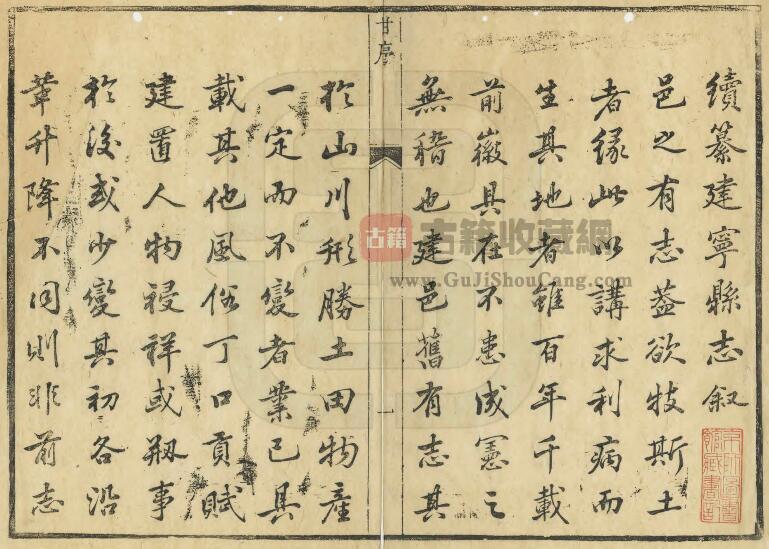 續纂建寧縣志叙
邑之有志葢欲牧斯土
者緣此以講求利病而
生其地者雖百年千載
前徽具在不患成憲之
無稽也建邑舊有志其
甘序
一
於山川形勝土田物產
一定而不變者業已具
載其他風俗丁口貢賦
建置人物祲祥或刱事
於後或少變其初各沿
革升降不同則非前志
古籍
古籍收藏網
www.GuJiShouCang.com